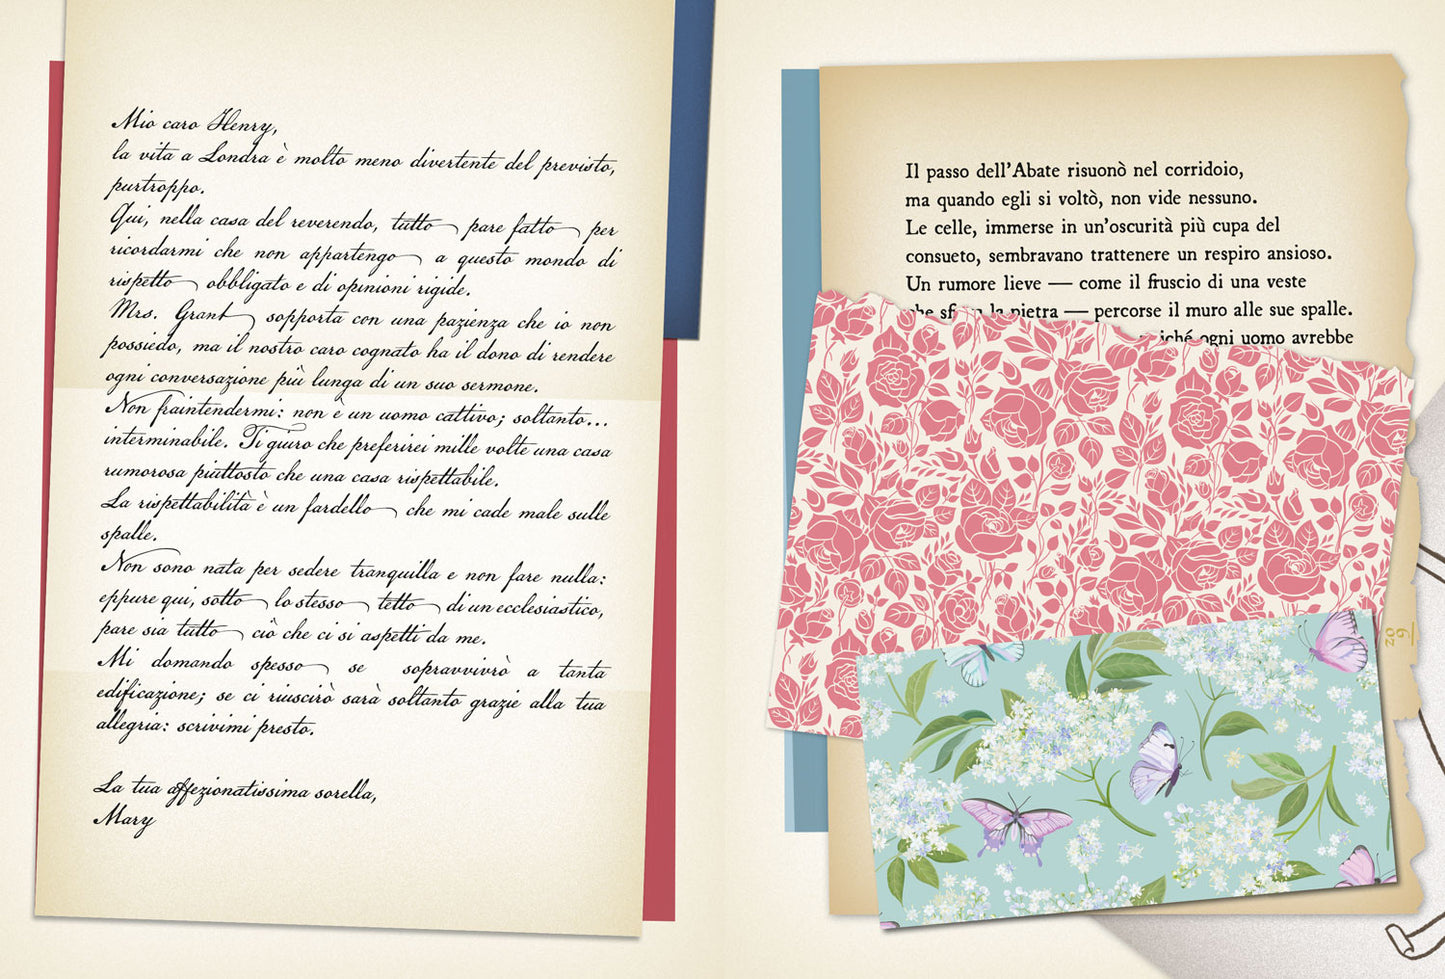 Mio caro Henry,
la vita a Londra è molto meno divertente del previsto,
purtroppo.
Qui, nella casa del reverendo, tutto pare fatto per
ricordarmi che non appartengo a questo mondo di
rispetto obbligato e di opinioni rigide.
Mrs. Grant sopporta con una pazienza che io non
possiedo, ma il nostro caro cognato ha il dono di rendere
ogni conversazione più lunga di un suo sermone.
Non fraintendermi: non è un uomo cattivo; soltanto...
interminabile. Ti giuro che preferirei mille volte una casa
rumorosa piuttosto che una casa rispettabile.
La rispettabilità è un fardello che mi cade male sulle
spalle.
Non sono nata per sedere tranquilla e non fare nulla:
eppure qui, sotto lo stesso tetto di un ecclesiastico,
pare sia tutto ciò che ci si aspetti da me.
Mi domando spesso se sopravvivrò a tanta
edificazione; se ci riuscirò sarà soltanto grazie alla tua
allegria: scrivimi presto.
La tua affezionatissima sorella,
Mary
Il passo dell'Abate risuonò nel corridoio,
ma quando egli si voltò, non vide nessuno.
Le celle, immerse in un'oscurità più cupa del
consueto, sembravano trattenere un respiro ansioso.
Un rumore lieve — come il fruscio di una veste
la pietra — percorse il muro alle sue spalle.
ogni uomo avrebbe
6
oz